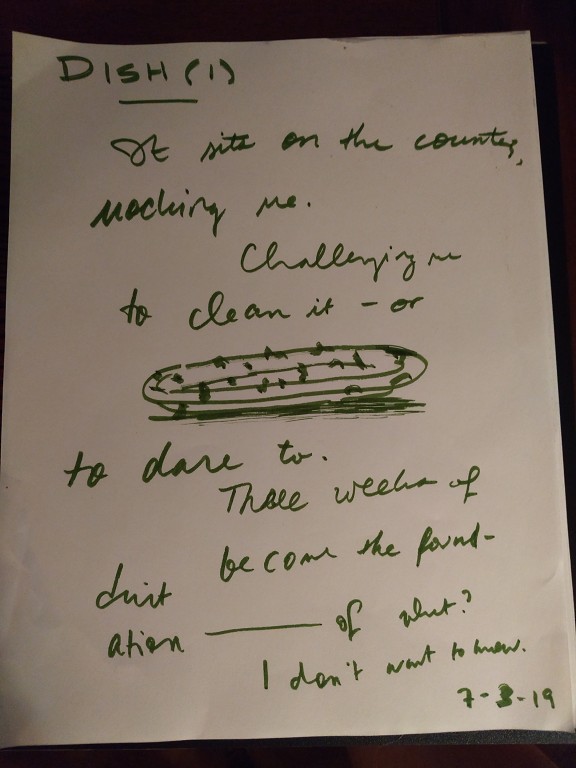 DISH (1)
It sits on the counter,
mocking me.
Challenging me
to clean it - or
to dare to.
Three weeks of
dirt become the found-
ation ______ of what?
I don't want to know.
7-3-19